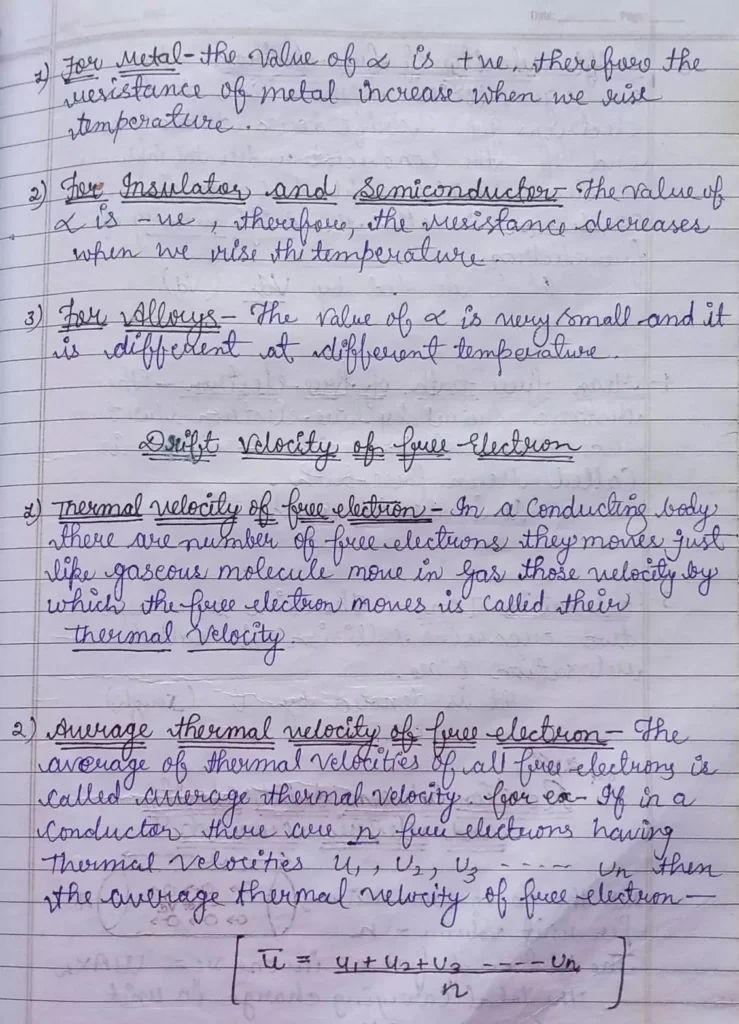 Date: Page:
1) For Metal - the value of α is +ve, therefore the
resistance of metal increase when we rise
temperature.
2) For Insulator and Semiconductor - The value of
α is -ve, therefore, the resistance decreases
when we rise the temperature.
3) For Alloys - The value of α is very small and it
is different at different temperature.
Drift velocity of free Electron
1) Thermal velocity of free electron - In a conducting body
there are number of free electrons they moves just
like gaseous molecule move in gas those velocity by
which the free electron moves is called their
thermal velocity.
2) Average thermal velocity of free electron - The
average of thermal velocities of all free electrons is
called average thermal velocity. for ex- If in a
conductor there are n free electrons having
thermal velocities u₁, u₂, u₃ ----- un then
the average thermal velocity of free electron -
[ ū = u₁+u₂+u₃ ---- un / n ]